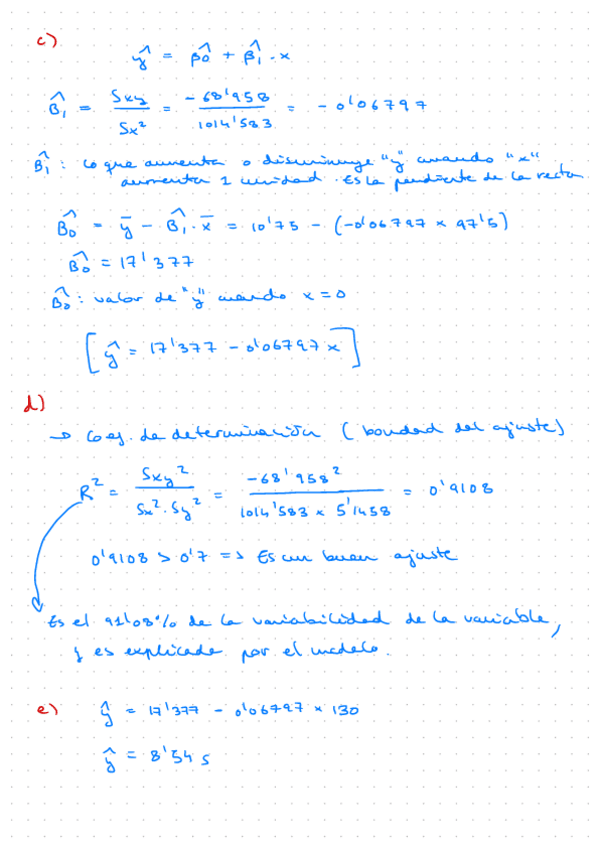 c)
ŷ = β̂0 + β̂1 · x
β̂1 = Sxy / Sx² = -68'958 / 1014'583 = -0'06797
β̂1 : lo que aumenta o disminuye "y" cuando "x"
aumenta 1 unidad. Es la pendiente de la recta
β̂0 = ȳ - β̂1 · x̄ = 10'75 - (-0'06797 × 97'5)
β̂0 = 17'377
β̂0 : valor de "y" cuando x = 0
[ ŷ = 17'377 - 0'06797 x ]
d)
→ Coef. de determinación (bondad del ajuste)
R² = Sxy² / Sx² · Sy² = -68'958² / 1014'583 × 5'1458 = 0'9108
0'9108 > 0'7 => Es un buen ajuste
Es el 91'08% de la variabilidad de la variable,
y es explicada por el modelo.
e) ŷ = 17'377 - 0'06797 × 130
ŷ = 8'54 s